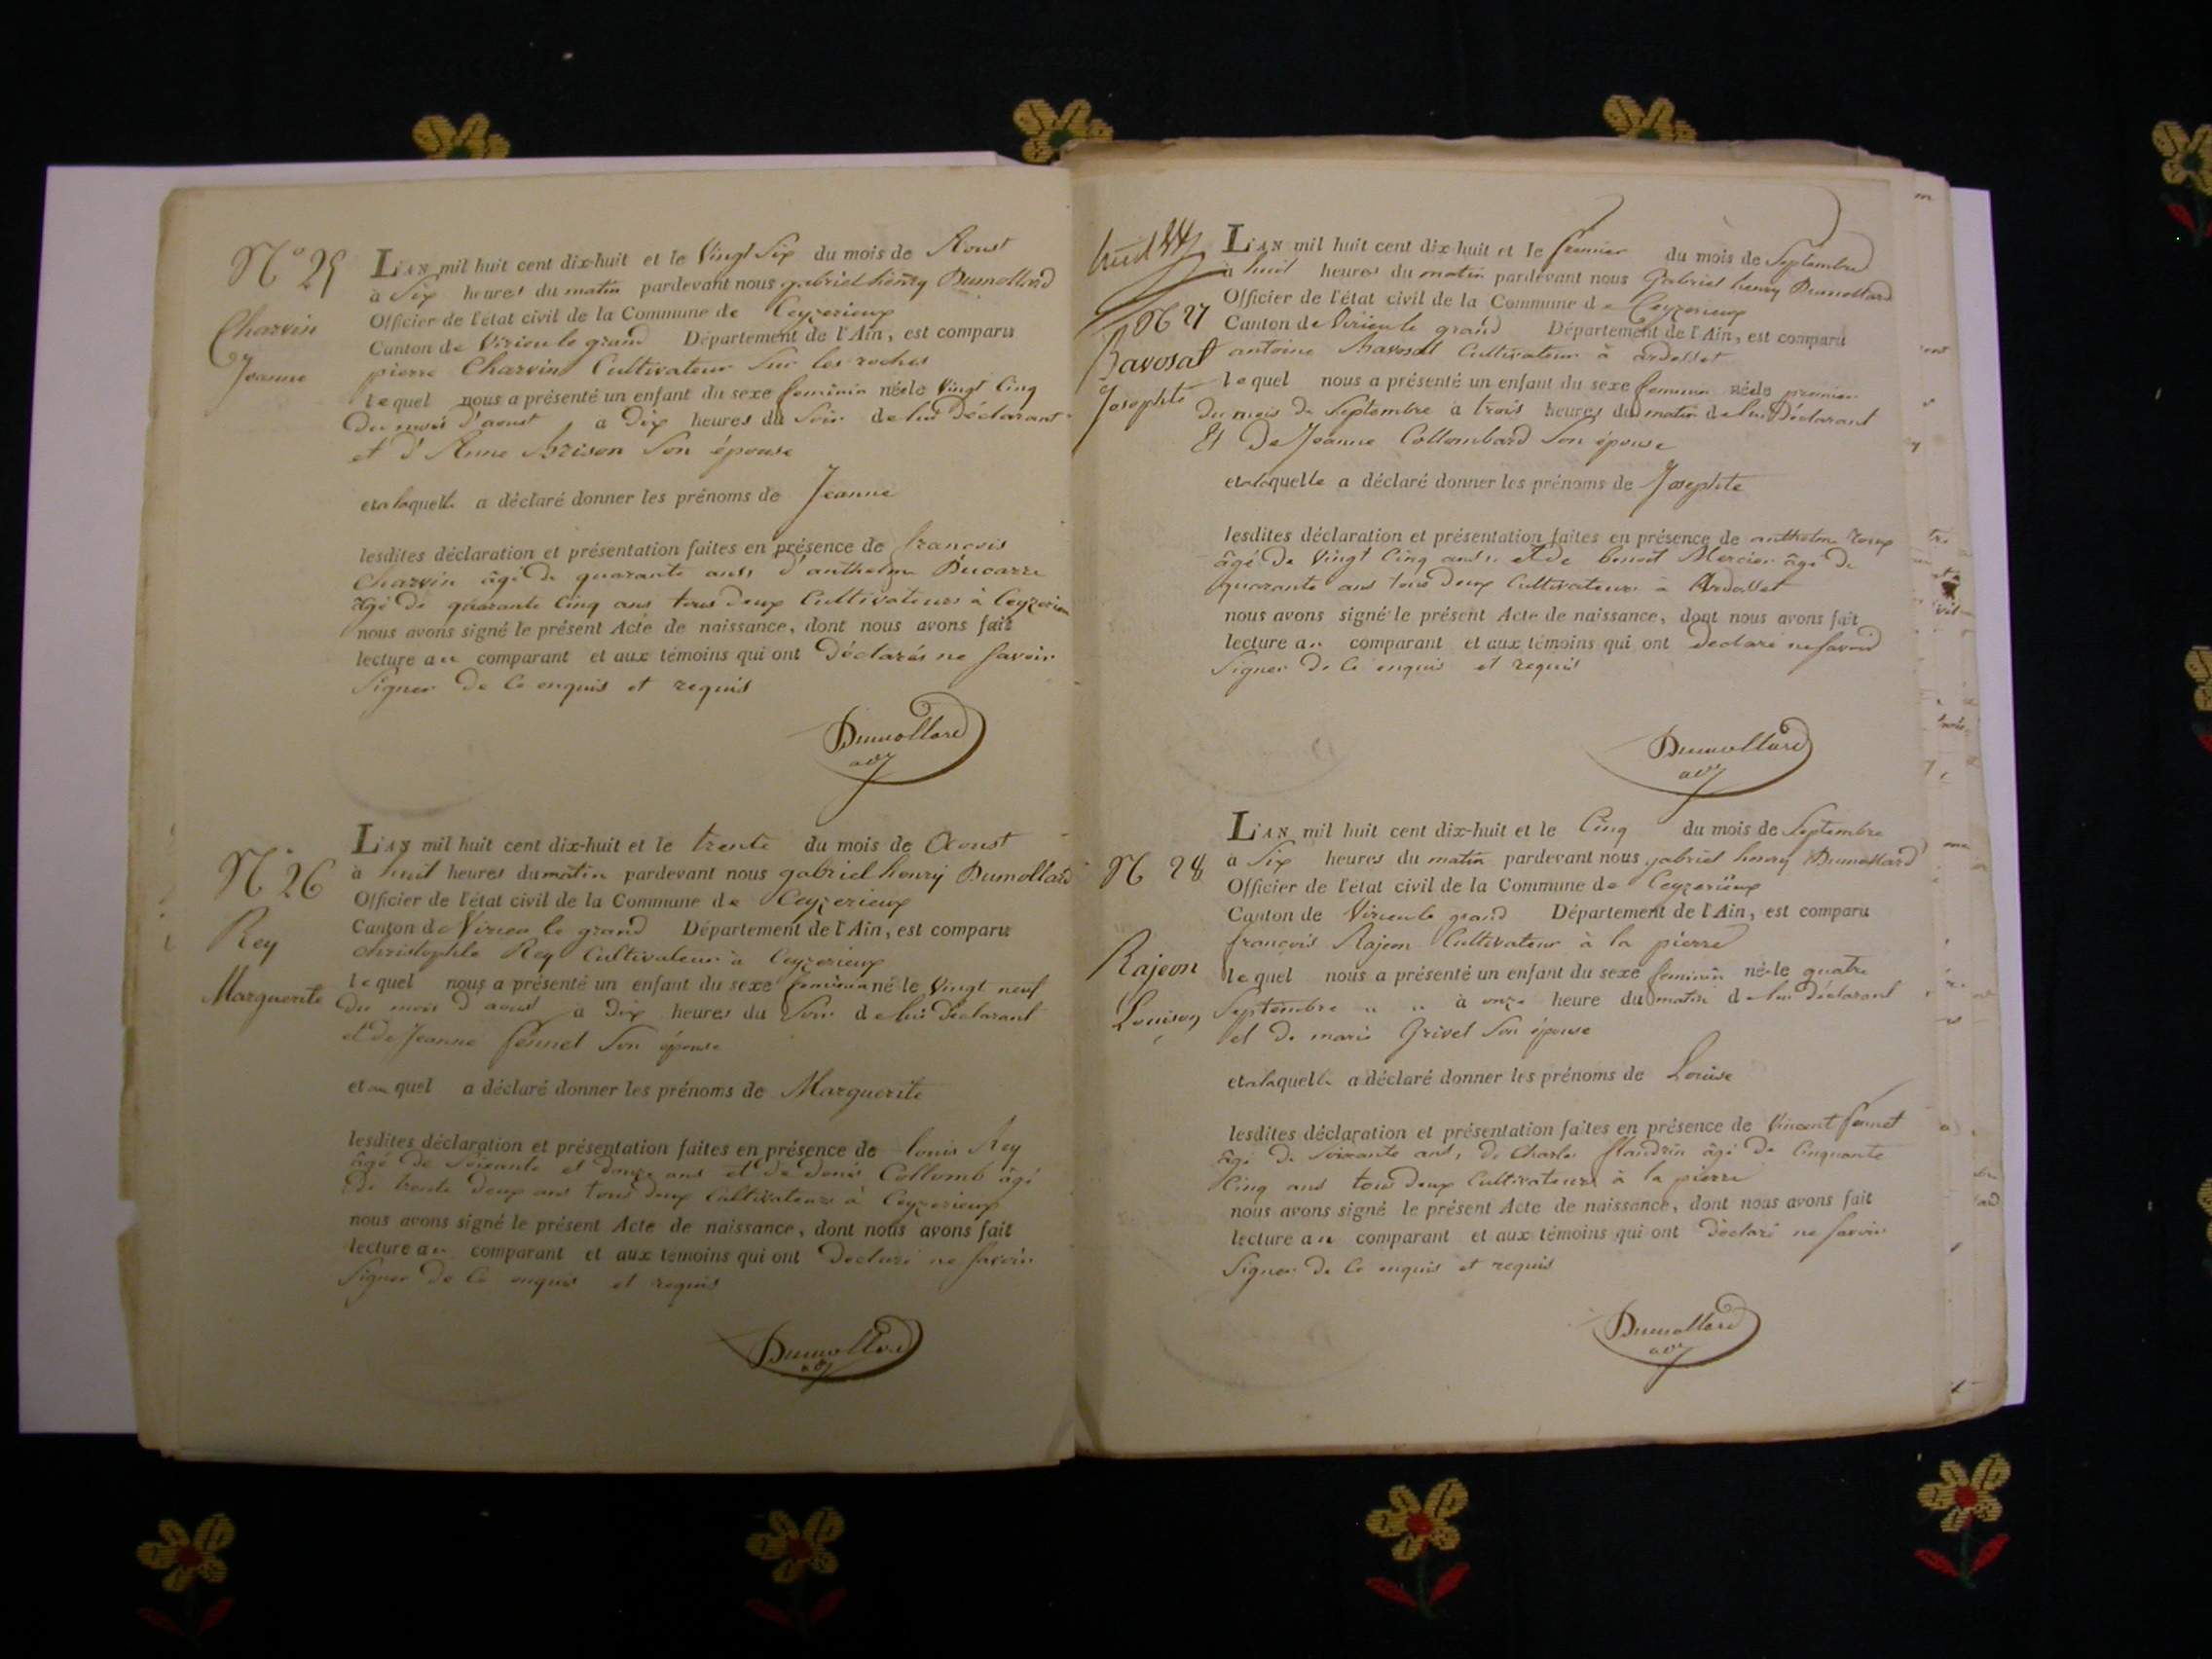 N° 25
Charvin
Jeanne
L'AN mil huit cent dix-huit et le Vingt Six du mois de Aoust
à Six heures du matin pardevant nous gabriel henry Dumollard
Officier de l'état civil de la Commune de Ceyzerieux
Canton de Virieu le grand Département de l'Ain, est comparu
pierre Charvin Cultivateur Sur les roches
lequel nous a présenté un enfant du sexe feminin née le Vingt Cinq
Du mois d'aoust à Dix heures du Soir de lui Déclarant
et d'Anne Brison Son épouse
et a laquelle a déclaré donner les prénoms de Jeanne
lesdites déclaration et présentation faites en présence de françois
Charvin âgé de quarante ans, d'anthelme Ducarre
âgé de quarante Cinq ans tous deux Cultivateurs à Ceyzerieux
nous avons signé le présent Acte de naissance, dont nous avons fait
lecture au comparant et aux témoins qui ont Déclarés ne Savoir
Signer De Ce enquis et requis
Dumollard
N° 26
Rey
Marguerite
L'AN mil huit cent dix-huit et le trente du mois de Aoust
à huit heures du matin pardevant nous gabriel henry Dumollard
Officier de l'état civil de la Commune de Ceyzerieux
Canton de Virieu le grand Département de l'Ain, est comparu
christophle Rey Cultivateur à Ceyzerieux
lequel nous a présenté un enfant du sexe feminin né le Vingt neuf
Du mois d'aoust à Dix heures du Soir de lui Déclarant
et de Jeanne fennet Son épouse
et au quel a déclaré donner les prénoms de Marguerite
lesdites déclaration et présentation faites en présence de louis Rey
âgé de Soixante et douze ans et de denis Collomb âgé
De trente deux ans tous deux Cultivateurs à Ceyzerieux
nous avons signé le présent Acte de naissance, dont nous avons fait
lecture au comparant et aux témoins qui ont Declaré ne Savoir
Signer De Ce enquis et requis
Dumollard
N 27
Bavosat
Josephte
L'AN mil huit cent dix-huit et le premier du mois de Septembre
à huit heures du matin pardevant nous Gabriel henry Dumollard
Officier de l'état civil de la Commune de Ceyzerieux
Canton de Virieu le grand Département de l'Ain, est comparu
antoine Bavosat Cultivateur à ardosset
lequel nous a présenté un enfant du sexe feminin née le premier
du mois de Septembre à trois heures du matin de lui Déclarant
Et De Jeanne Collombard Son épouse
et a laquelle a déclaré donner les prénoms de Josephte
lesdites déclaration et présentation faites en présence de anthelme
âgé De Vingt Cinq ans, et de benoit Mercier âgé De
quarante ans tous deux Cultivateurs à Ardosset
nous avons signé le présent Acte de naissance, dont nous avons fait
lecture au comparant et aux témoins qui ont declaré ne Savoir
Signer De Ce enquis et requis
Dumollard
N 28
Rajeon
Louison
L'AN mil huit cent dix-huit et le Cinq du mois de Septembre
à Six heures du matin pardevant nous gabriel henry Dumollard
Officier de l'état civil de la Commune de Ceyzerieux
Canton de Virieu le grand Département de l'Ain, est comparu
françois Rajeon Cultivateur à la pierre
lequel nous a présenté un enfant du sexe feminin née le quatre
Septembre " " à onze heure du matin de lui déclarant
et De marie Grivel Son épouse
et a laquelle a déclaré donner les prénoms de Louise
lesdites déclaration et présentation faites en présence de Vincent fennet
âgé De Soixante ans, De Charles flandrin âgé De Cinquante
Cinq ans tous deux Cultivateurs à la pierre
nous avons signé le présent Acte de naissance, dont nous avons fait
lecture au comparant et aux témoins qui ont declaré ne Savoir
Signer De Ce enquis et requis
Dumollard